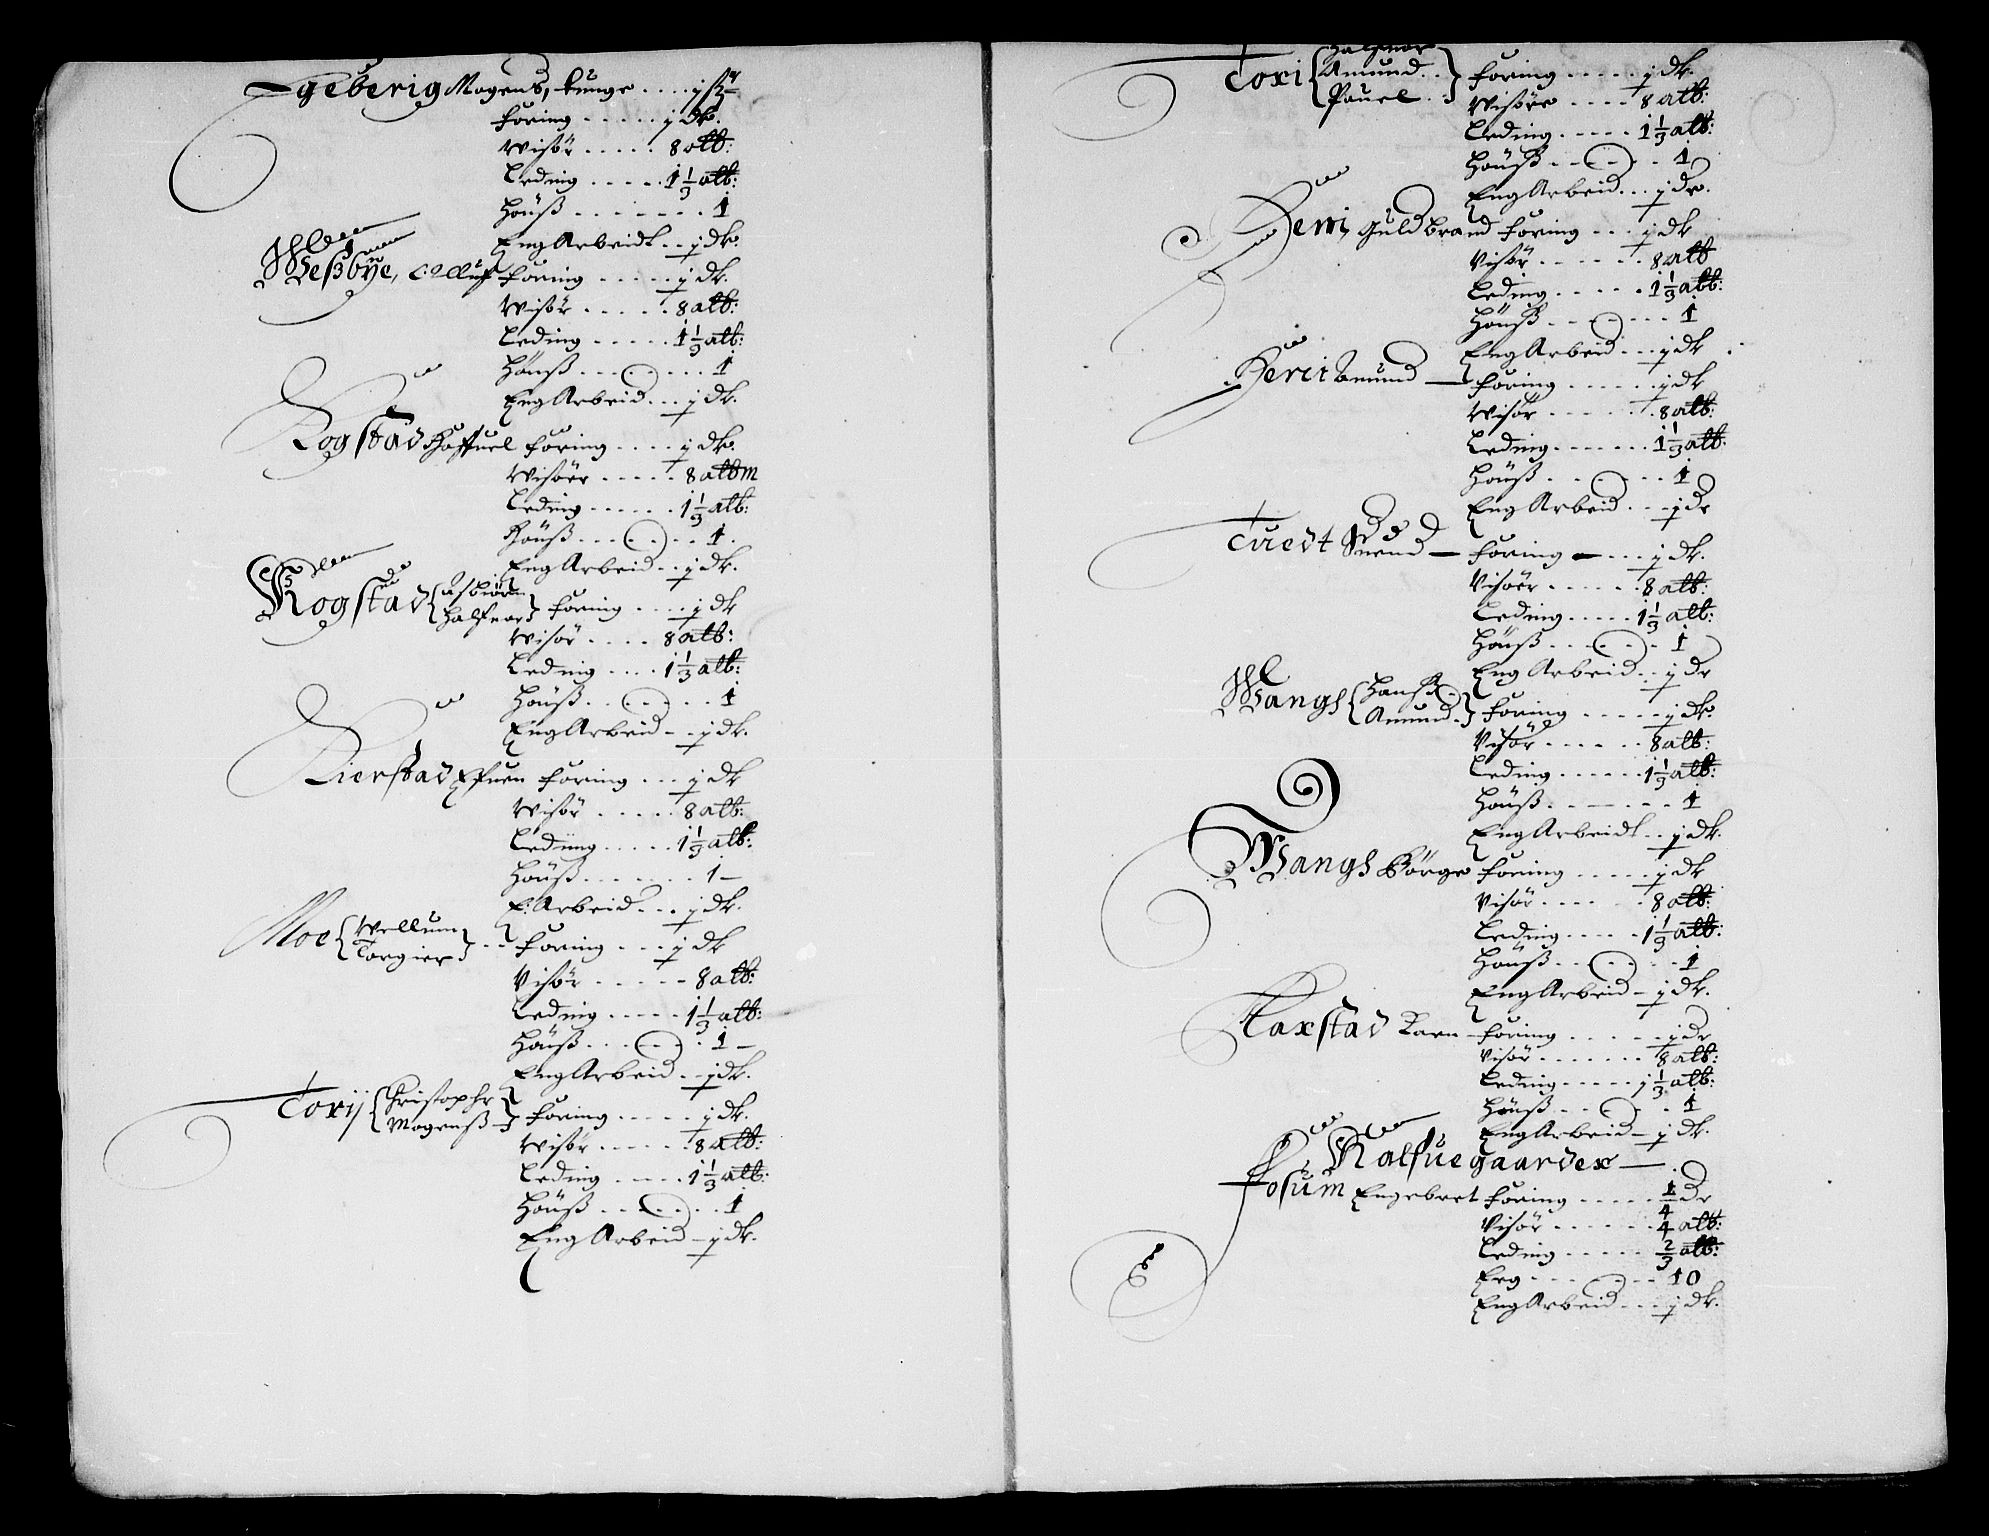 geberig Mogens, tunge .... j
foring ..... j dr.
Wisör ..... 8 alb:
Leding ..... 1 1/3 alb:
Hönß ....... 1
Eng Arbeidt .. j dr.
Weßbÿe, foring ..... j dr.
Wisör ..... 8 alb:
Leding ..... 1 1/3 alb:
Hönß ....... 1
Eng Arbeid ... j dr.
Rogstad foring .... j dr.
Wisöer ..... 8 albm
Leding ...... 1 1/3 alb:
Hönß ....... 1.
Eng Arbeid .. j dr.
Rogstad { Asbiörn
Halfuor } foring .... j dr
Wisör .... 8 alb:
Leding .... 1 1/3 alb:
Hönß ....... 1
Eng Arbeid - . j dr.
Kierstad foring ... j dr
Wisör ..... 8 alb:
Leding ..... 1 1/3 alb:
Hönß ...... 1 –
E: Arbeid ... j dr.
Moe { Wellum
Torgier } .. foring ... j dr
Visör ..... 8 alb:
Leding ..... 1 1/3 alb:
Hönß ...... 1 –
Eng Arbeid .. j dr.
Toxij { Christopher
Mogenß } foring ..... j dr.
Wisör ..... 8 alb:
Leding ..... 1 1/3 alb:
Hönß ...... 1
Eng Arbeid – j dr.
Toxi { Halfuor
Amund ..
Pouel .. } foring ..... j dr.
Wisöre .... 8 alb:
Leding ..... 1 1/3 alb:
Hönß ...... 1
Eng Arbeid ... j dr.
Guldbrand foring ... j dr
Visör ...... 8 alb
Leding ..... 1 1/3 alb:
Hönß ....... 1
Eng Arbeid ... j dr .
Amund — foring ...... j dr
Wisör ...... 8 alb:
Leding ...... 1 1/3 alb:
Hönß ....... 1
Eng Arbeid ... j dr
Tuedt Suend — foring — ... j dr.
Visöer ...... 8 alb:
Leding ..... 1 1/3 alb:
Hönß ...... 1
Eng Arbeid .. j dr
Wangh { Hanß .
Amund . } foring ..... j dr.
Visör ...... 8 alb:
Leding ...... 1 1/3 alb:
Hönß ....... 1
Eng Arbeidt .. j dr.
Wangh Börge foring ..... j dr
Visör ...... 8 alb:
Leding ..... 1 1/3 alb:
Hönß ...... 1
Eng Arbeid – j dr.
Haxstad foring ...... j dr
Visör ....... 8 alb:
Leding ..... j 1/3 alb:
Hönß ...... 1
Eng Arbeid – j dr.
Halfuegaarder — .
Fosum Engebret foring ..... 1/4 dr
Visör ...... 4 alb:
Leding ..... 2/3 alb:
Erg ....... 10
Eng Arbeid ... j dr.